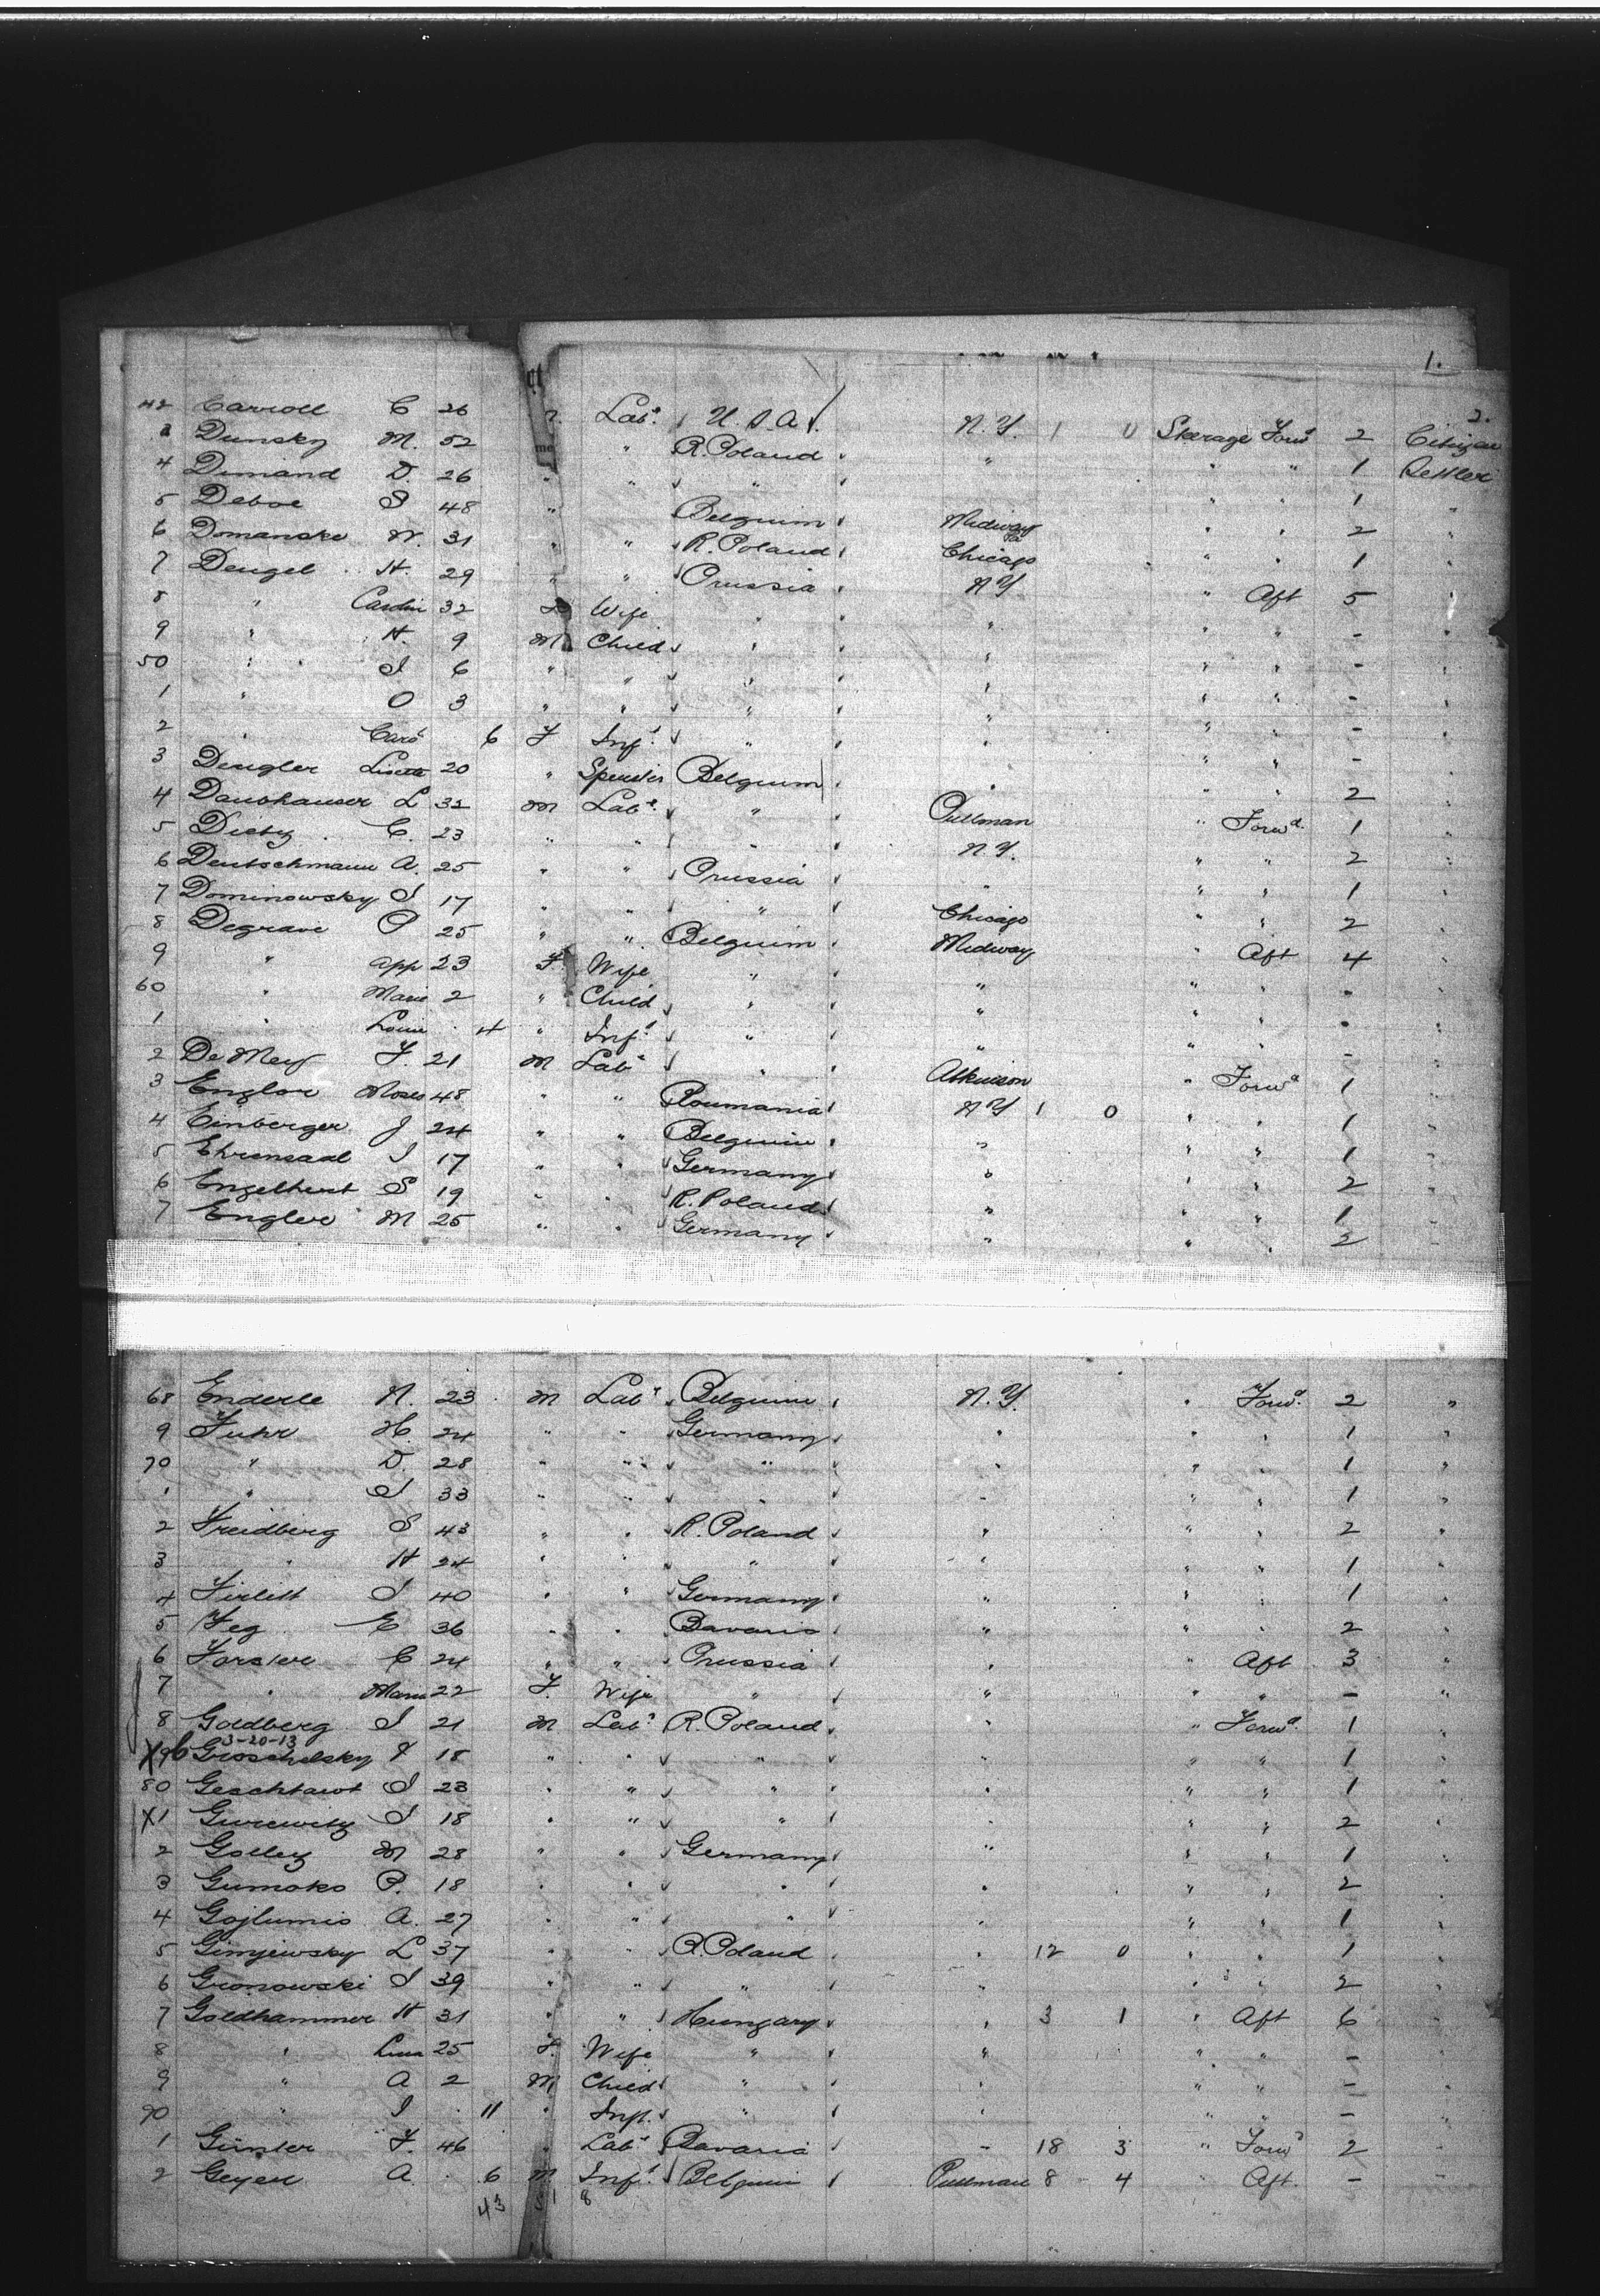 1.
42 Carroll C 26 Lab.r U.S.A. N.Y. 1 0 Steerage Forwd 2 Citizen
3 Dunsky M. 52 " R. Poland " " " 1 Settler
4 Dimand D. 26 " " " " " " 1 "
5 Deboe S 48 " Belguim Midway " " 2 "
6 Domanske N. 31 " " R. Poland Chicago " " 1 "
7 Deugel H. 29 " " Prussia N.Y " Aft 5 "
8 " 32 Wife " " " " - "
9 " H. 9 M Child " " " " - "
50 " I 6 " " " " " " - "
1 " O 3 " " " " " " - "
2 " Caro 6 F Inft " " " " - "
3 Deugler Lisette 20 " Spinster Belgium " " " 2 "
4 Daubhauser L 32 M Labr " Pullman " Forwd 1 "
5 Dietz C. 23 " " " N.Y. " " 2 "
6 Deutschmann A. 25 " " Prussia " " " 1 "
7 Dominowsky I 17 " " " Chicago " " 2 "
8 Degrave P 25 " " Belguim Midway " Aft 4 "
9 " 23 F. Wife " " " " - "
60 " Marie 2 " Child " " " " - "
1 " Louie 4 " Inft " " " " - "
2 De Mey F. 21 M Labr " Atkinson " Forwd 1 "
3 Englor Moses 48 " " Roumania N Y 1 0 " " 1 "
4 Einberger J 24 " " Belguim " " " 1 "
5 Ehrensaal I 17 " " Germany " " " 2 "
6 Engelhert S 19 " " R. Poland " " " 1 "
7 Engler M 25 " " Germany " " " 2 "
68 Enderle N. 23 M Labr Belguim N.Y. " Forwd 2 "
9 Fuhr H. 24 " " Germany " " " 1 "
70 " D. 28 " " " " " " 1 "
1 " I 33 " " " " " " 1 "
2 Freidberg S 43 " " R. Poland " " " 2 "
3 " H 24 " " " " " " 1 "
4 Firlett I 40 " " Germany " " " 1 "
5 Feg E 36 " " Bavaria " " " 2 "
6 Forster C 24 " " Prussia " " Aft 3 "
7 " Maria 22 F. Wife " " " " - "
8 Goldberg I 21 M Labr R. Poland " " Forwd 1 "
3-20-13
X 9 Groschelsky F 18 " " " " " " 1 "
80 Geschtawt I 23 " " " " " " 1 "
X1 Gurewitz I 18 " " " " " " 2 "
2 Golley M 28 " " Germany " " " 1 "
3 Gumoko P. 18 " " " " " " 2 "
4 Gojlumis A. 27 " " " " " " 1 "
5 Ginjewsky L 37 " " R. Poland " 12 0 " " 1 "
6 Gronowski I 39 " " " " " " 2 "
7 Goldhammer H 31 " " Hungary " 3 1 " Aft 6 "
8 " Lina 25 F. Wife " " " " - "
9 " A 2 M Child " " " " - "
90 " I 11 " Inft. " " " " - "
1 Günter F. 46 " Labr Bavaria " 18 3 " Forwd 2 "
2 Geyen A 6 M Inft Belguim Pullman 8 4 " Aft. - "
43 51 8